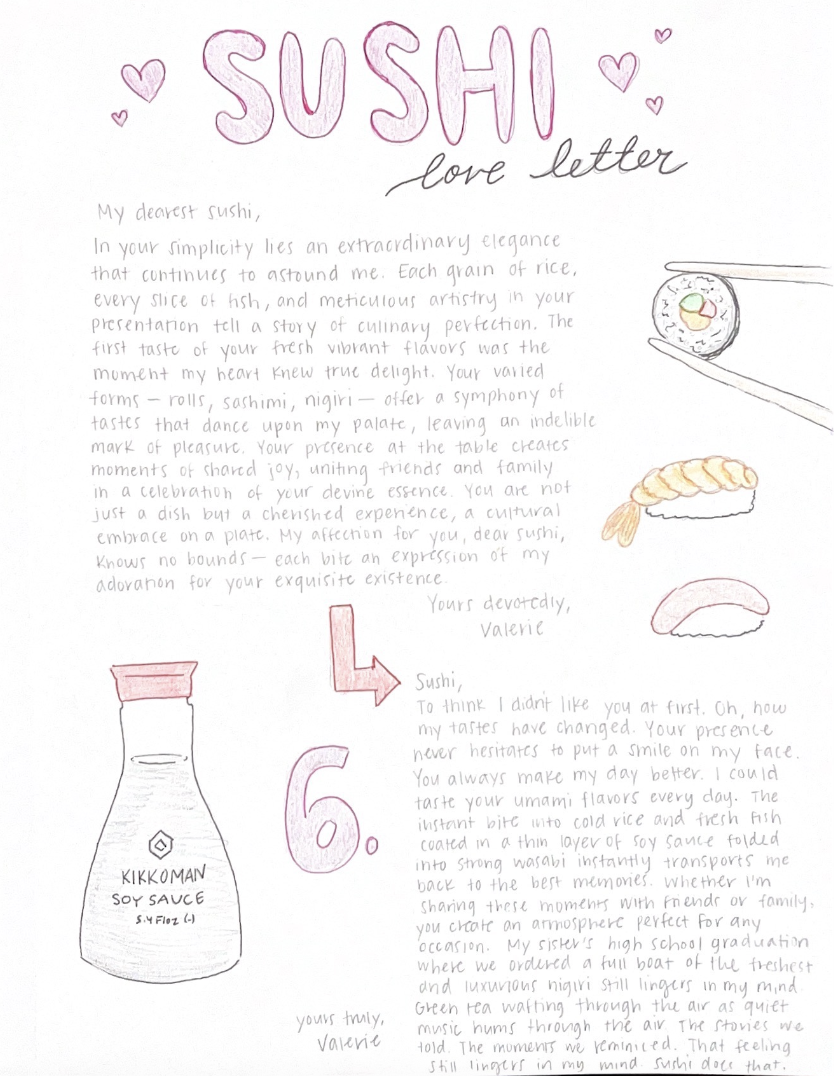 SUSHI
love letter
My dearest sushi,
In your simplicity lies an extraordinary elegance
that continues to astound me. Each grain of rice,
every slice of fish, and meticulous artistry in your
presentation tell a story of culinary perfection. The
first taste of your fresh vibrant flavors was the
moment my heart knew true delight. Your varied
forms — rolls, sashimi, nigiri — offer a symphony of
tastes that dance upon my palate, leaving an indelible
mark of pleasure. Your presence at the table creates
moments of shared joy, uniting friends and family
in a celebration of your devine essence. You are not
just a dish but a cherished experience, a cultural
embrace on a plate. My affection for you, dear sushi,
knows no bounds — each bite an expression of my
adoration for your exquisite existence.
Yours devotedly,
Valerie
Sushi,
To think I didn't like you at first. Oh, how
my tastes have changed. Your presence
never hesitates to put a smile on my face.
You always make my day better. I could
taste your umami flavors every day. The
instant bite into cold rice and fresh fish
coated in a thin layer of soy sauce folded
into strong wasabi instantly transports me
back to the best memories. Whether I'm
sharing these moments with friends or family,
you create an atmosphere perfect for any
occasion. My sister's high school graduation
where we ordered a full boat of the freshest
and luxurious nigiri still lingers in my mind.
Green tea wafting through the air as quiet
music hums through the air. The stories we
told. The moments we reminiced. That feeling
still lingers in my mind. Sushi does that.
yours truly,
Valerie
6.
KIKKOMAN
SOY SAUCE
5.4 Floz (-)